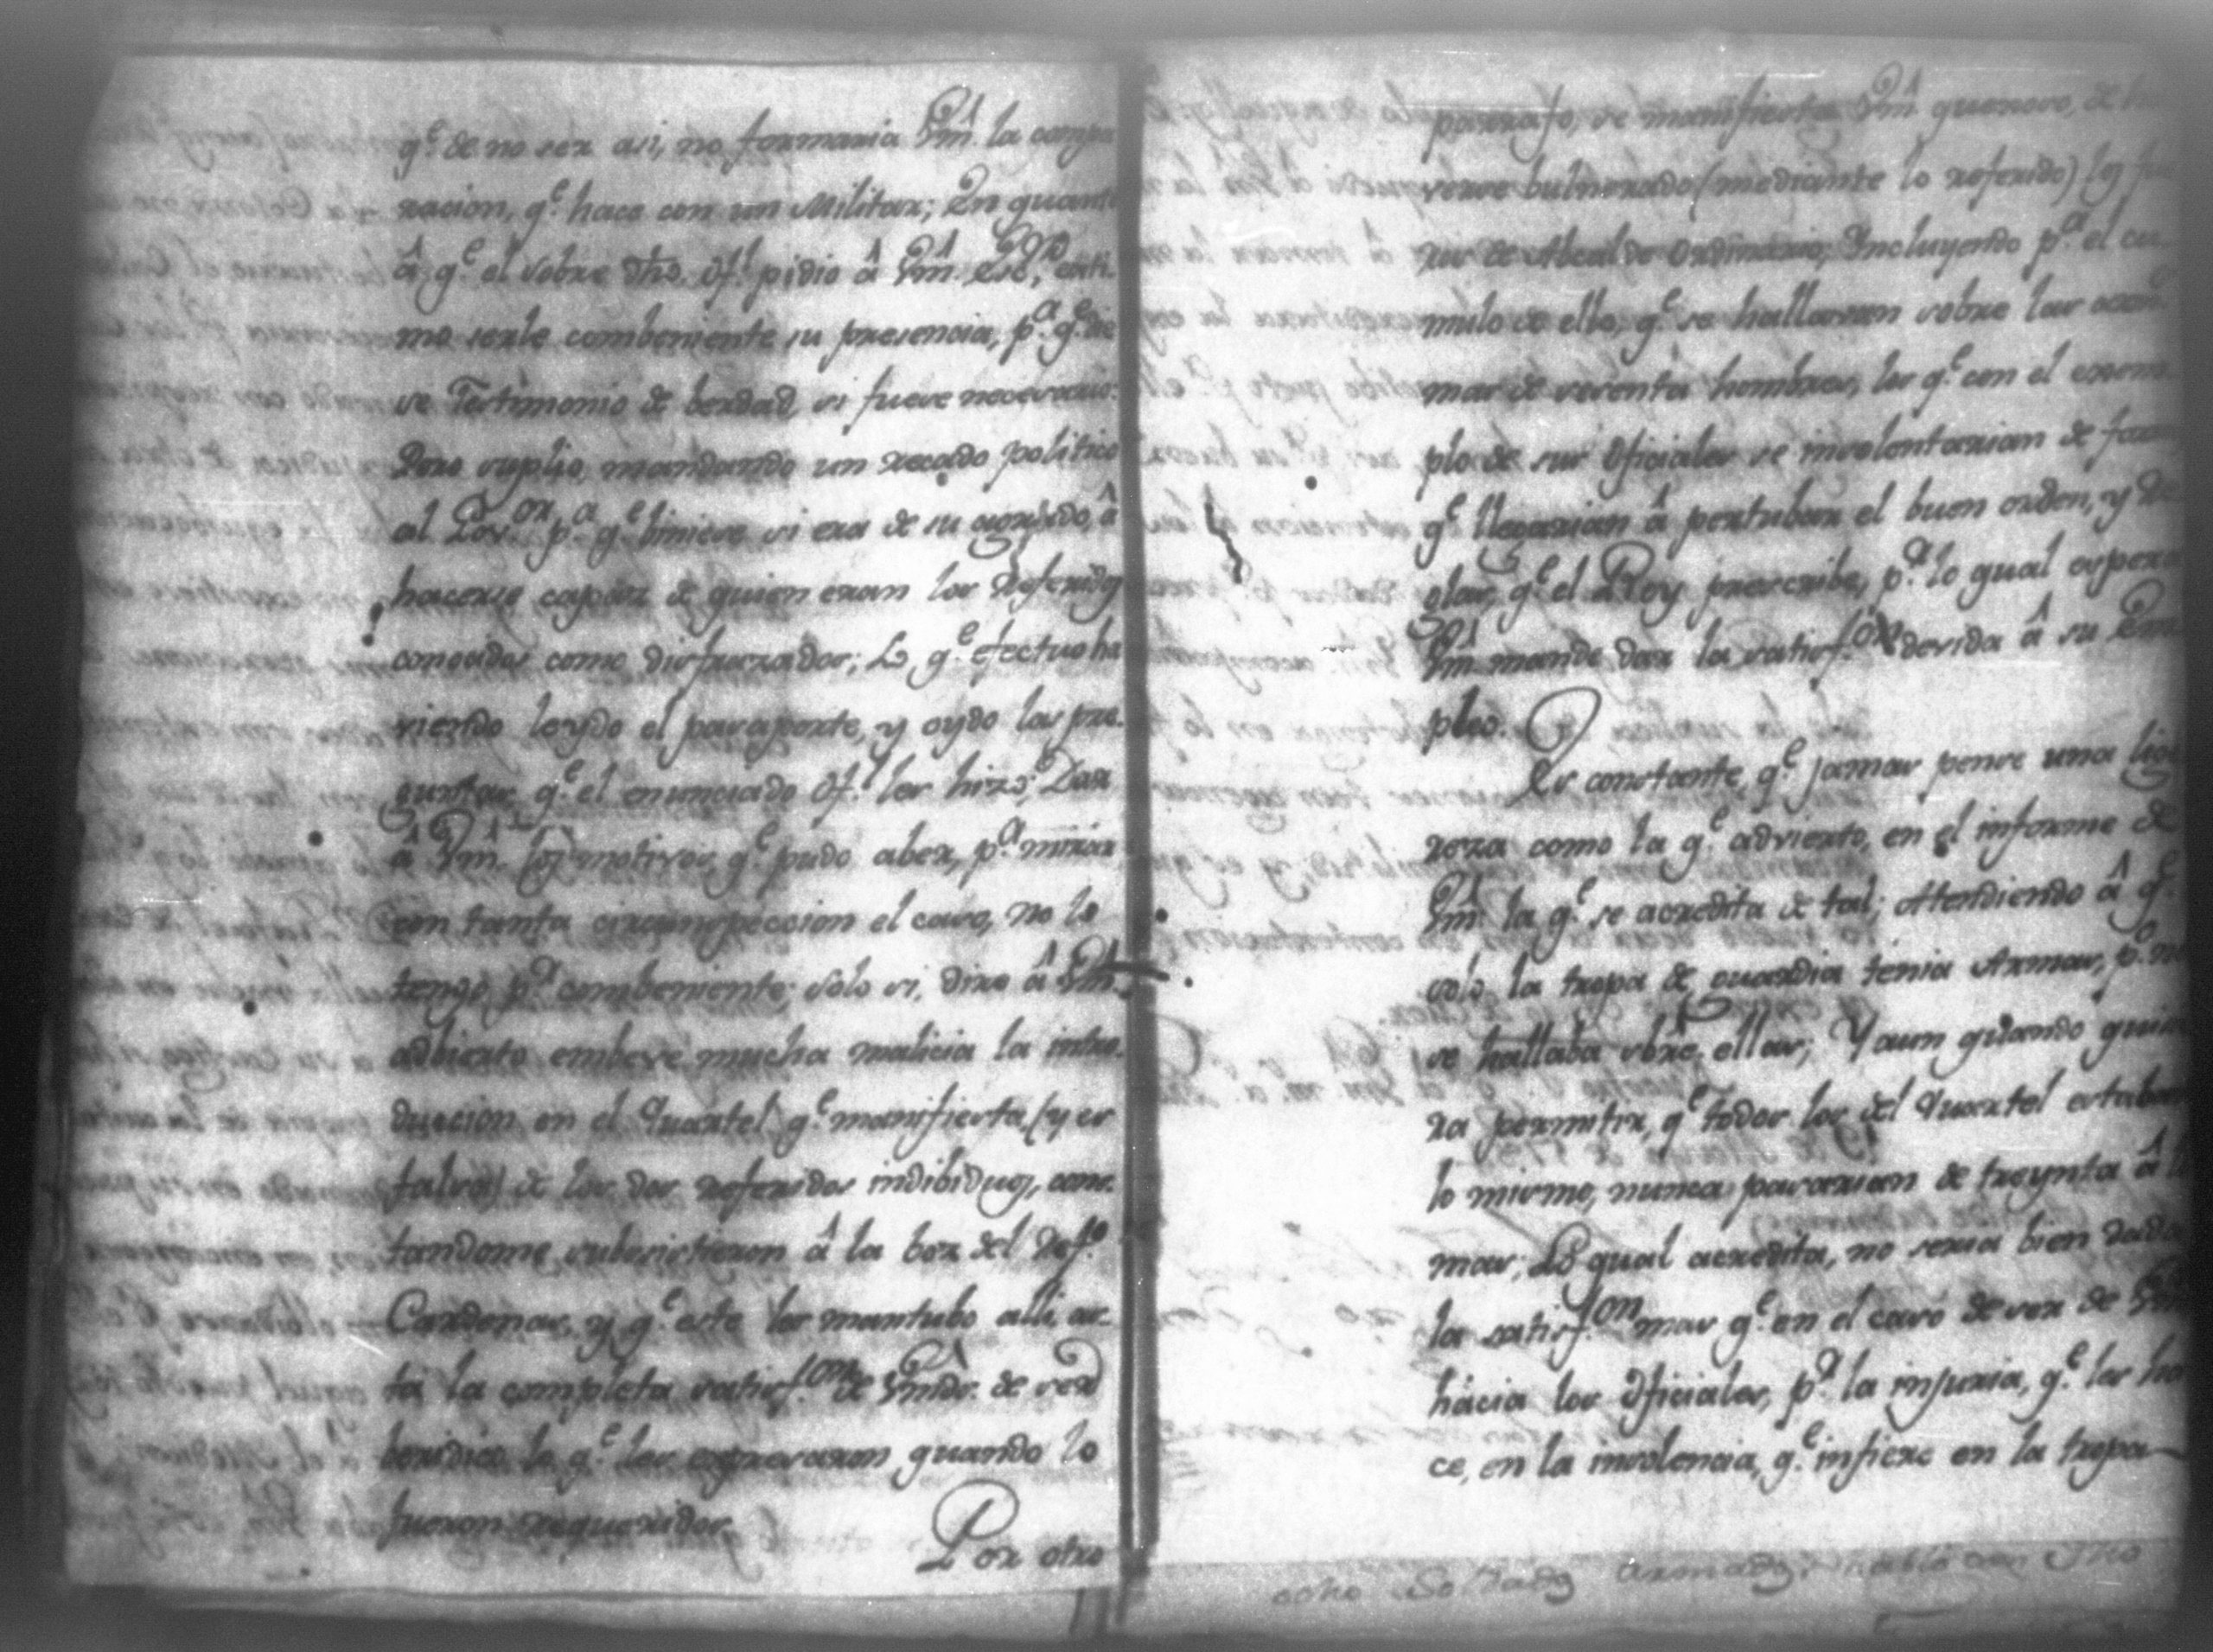 q.e de no ser asi, no formaria Vm. la compa
racion, q.e hace con un Militar; En quanto
â q.e el sobre dho. Of.l pidio â Vm. Esc.no, esti-
mo serle combeniente su presencia, p.a q.e die
se Testimonio de berdad, si fuese necesario:
Pero suplio, mandando un recado politico
al Gov.or p.a q.e biniese si era de su agrado, â
hacerse capàz de quien eran los Referidos
conocidos como disfrazados; Lo q.e efectuo ha
viendo leydo el pasaporte, y oydo las pre-
guntas q.e el enunciado Of.l les hizo; Dar
â Vm. los motivos, q.e pudo aber, p.a mirar
con tanta circunspeccion el caso, no lo
tengo p.r combeniente; solo si, dire â Vm.
adbierto embeve mucha malicia la intro-
duccion en el Quartel q.e manifiesta, (y es
falso) de los dos referidos indibiduos, cons-
tandome, subsistieron â la boz del Ref.do
Cardenas, y q.e este los mantubo alli, as-
ta la completa satisf.ion de Vmds. de ser
beridico lo q.e les expresaron quando lo
fueron requeridos.
Por otro
parrafo, se manifiesta Vm. quexoso, de
verse bulnerado (mediante lo referido) los fue
ros de Alcalde Ordinario; Incluyendo p.a el cu
mulo de ello, q.e se hallavan sobre las
mas de sesenta hombres, los q.e con el exem
plo de sus Oficiales se involontarian de
q.e llegarian â pertubar el buen orden, y
glas, q.e el Rey prescribe, p.r lo qual espera
Vm. mande dar la satisf.on devida â su Em
pleo.
Es constante, q.e jamas pense una lige
reza como la q.e advierto, en el informe de
Vm. la q.e se acredita de tal; Atendiendo â q.e
solo la tropa de guardia tenia Armas, p.o no
se hallaba sbre. ellas; Y aun quando quie
ra permitir, q.e todos los del Quartel estaban
lo mismo, nunca pasarian de treynta â lo
mas; Lo qual acredita, no seria bien dada
la satisf.ion mas q.e en el caso de ser de Vm.
hàcia los Oficiales, p.r la injuria, q.e les ha
ce, en la insolencia, q.e infiere en la tropa
ocho Soldados Armados